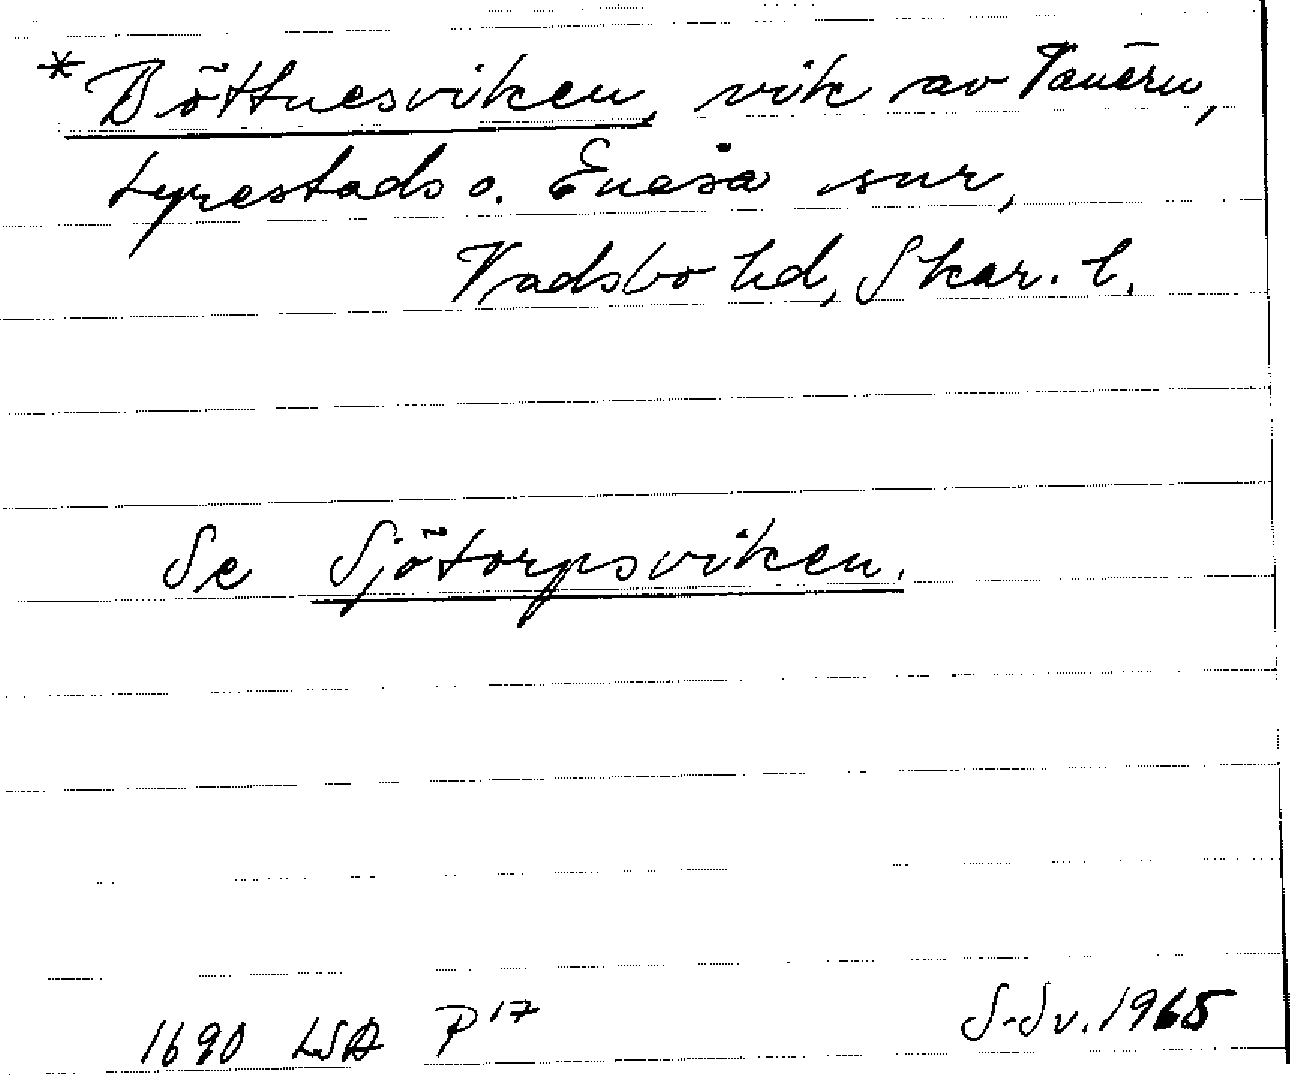 *Böttnesviken, vik av Vänern,
Lyrestads o. Enåsa snr,
Vadsbo hd, Skar. l.
Se Sjötorpsviken.
1690 LSA P17
S-Sv. 1965